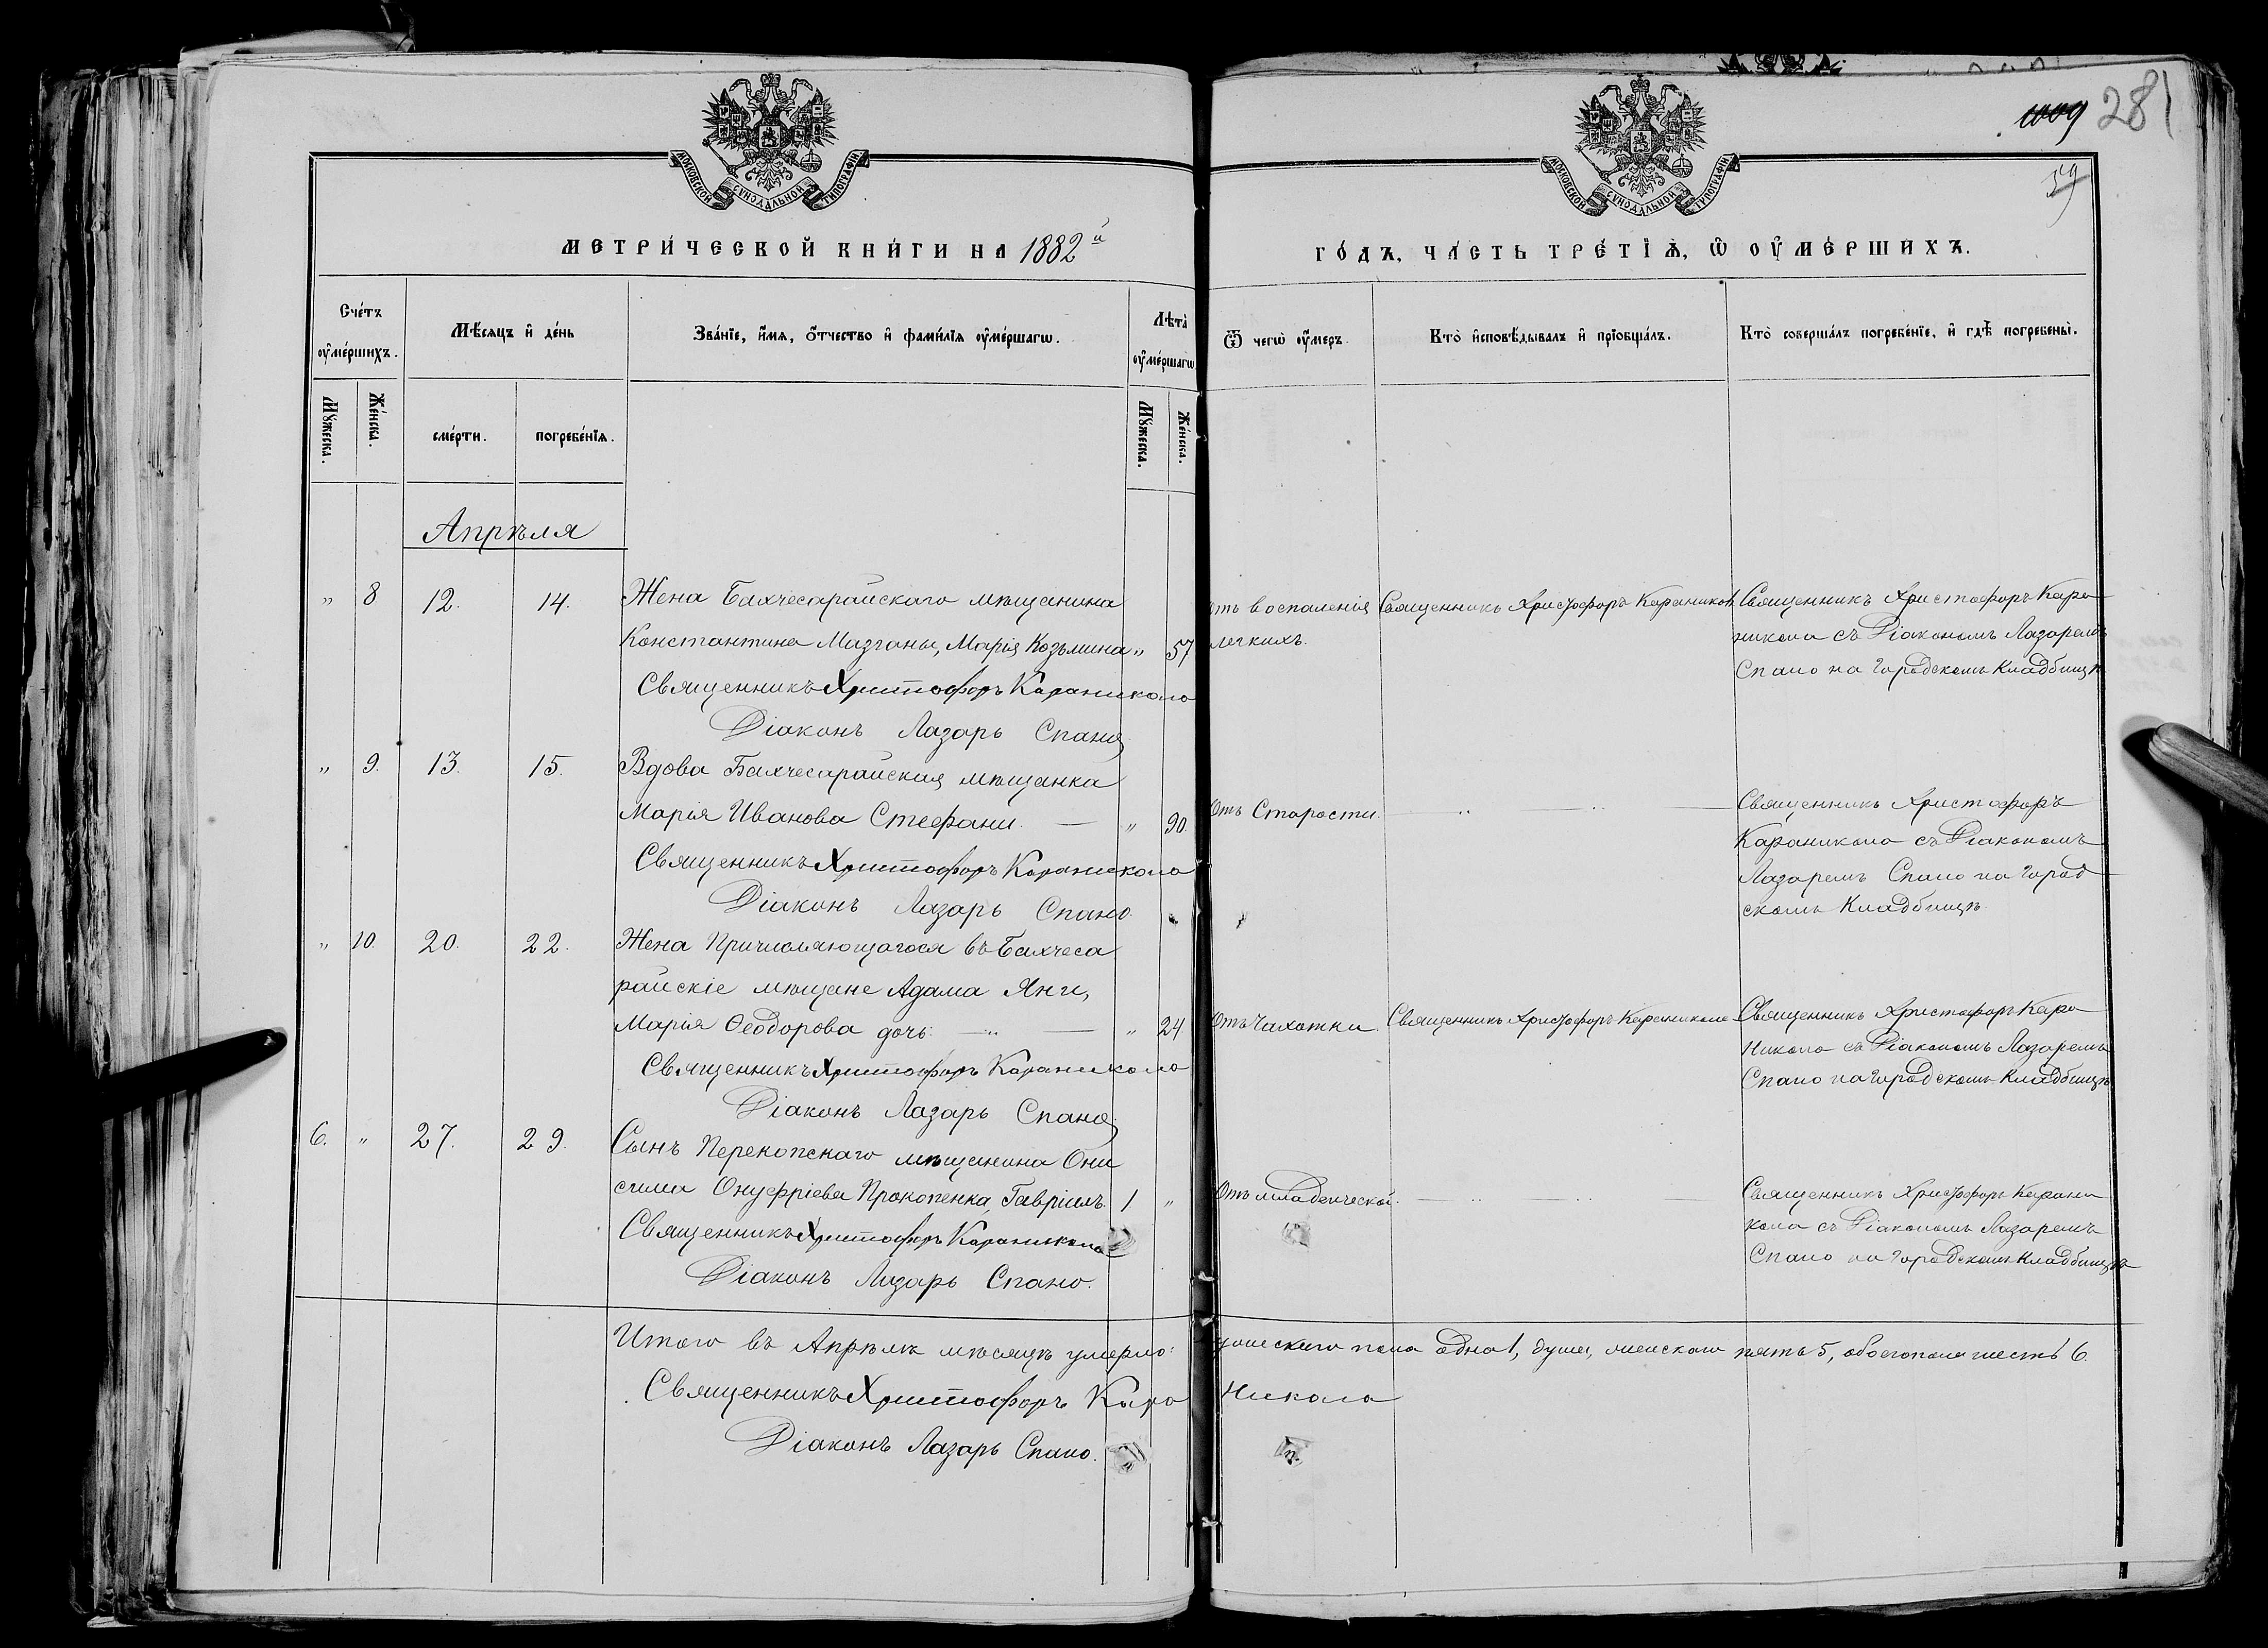 1009 281
59
МОСКОВСКОЙ СѴНОДАЛЬНОЙ ТИПОГРАФІИ
МОСКОВСКОЙ СѴНОДАЛЬНОЙ ТИПОГРАФІИ
МЕТРИ́ЧЕСКОЙ КНИ́ГИ НА 1882й
ГО́ДЪ, ЧА́СТЬ ТРЕ́ТІѦ, Ѽ ОУ҆МЕ́РШИХЪ.
Сче́тъ оу҆ме́ршихъ.
Мꙋ́жеска.
Же́нска.
Мѣ́сяцъ и҆ де́нь
сме́рти.
погребе́нїѧ.
Зва́нїе, и҆́мѧ, ѻ҆́тчество и҆ фами́лїѧ оу҆ме́ршагѡ.
Лѣта̀ оу҆ме́ршагѡ
Мꙋ́жеска.
Же́нска.
Ѿ чегѡ̀ оу҆́меръ
Кто̀ и҆сповѣ́дывалъ и҆ прїобща́лъ.
Кто̀ соверша́лъ погребе́нїе, и҆ гдѣ̀ погребены̀.
Апрѣля
„ 8 12. 14. Жена Бахчесарайскаго мѣщанина
Константина Мазганы, Марія Козьмина „ 57
Священникъ Христофоръ Караникола
Діаконъ Лазарь Спано
отъ воспаленія
легкихъ.
Священникъ Христофоръ Караникола
Священникъ Христофоръ Кара
никола съ Діакономъ Лазаремъ
Спано на Городскомъ Кладбищѣ
„ 9. 13. 15. Вдова Бахчесарайская мѣщанка
Марія Иванова Стефани. — „ 90.
Священникъ Христофоръ Караникола
Діаконъ Лазарь Спано
Отъ Старости. „ — „
Священникъ Христофоръ
Караникола съ Діакономъ
Лазаремъ Спано на Город
скомъ Кладбищѣ
„ 10. 20. 22. Жена Причисляющагося въ Бахчеса
райскіе мѣщане Адама Янги,
Марія Ѳеодорова дочь. — „ — „ 24
Священникъ Христофоръ Караникола
Діаконъ Лазарь Спано
Отъ Чахотки. Священникъ Христофоръ Караникола
Священникъ Христофоръ Кара
Никола съ Діакономъ Лазаремъ
Спано на Городскомъ Кладбищѣ
6. „ 27. 29. Сынъ Перекопскаго мѣщанина Они
сима Онуфріева Прокопенка, Гавріилъ. 1 „
Священникъ Христофоръ Караникола
Діаконъ Лазарь Спано.
Отъ младенческой. — „ — „ —
Священникъ Христофоръ Карани
кола съ Діакономъ Лазаремъ
Спано на Городскомъ Кладбищѣ
Итого въ Апрѣлѣ мѣсяцѣ умерло: мужескаго пола одна 1, душа, женскаго пять 5, обоего пола шесть 6.
Священникъ Христофоръ Кара Никола
Діаконъ Лазарь Спано.